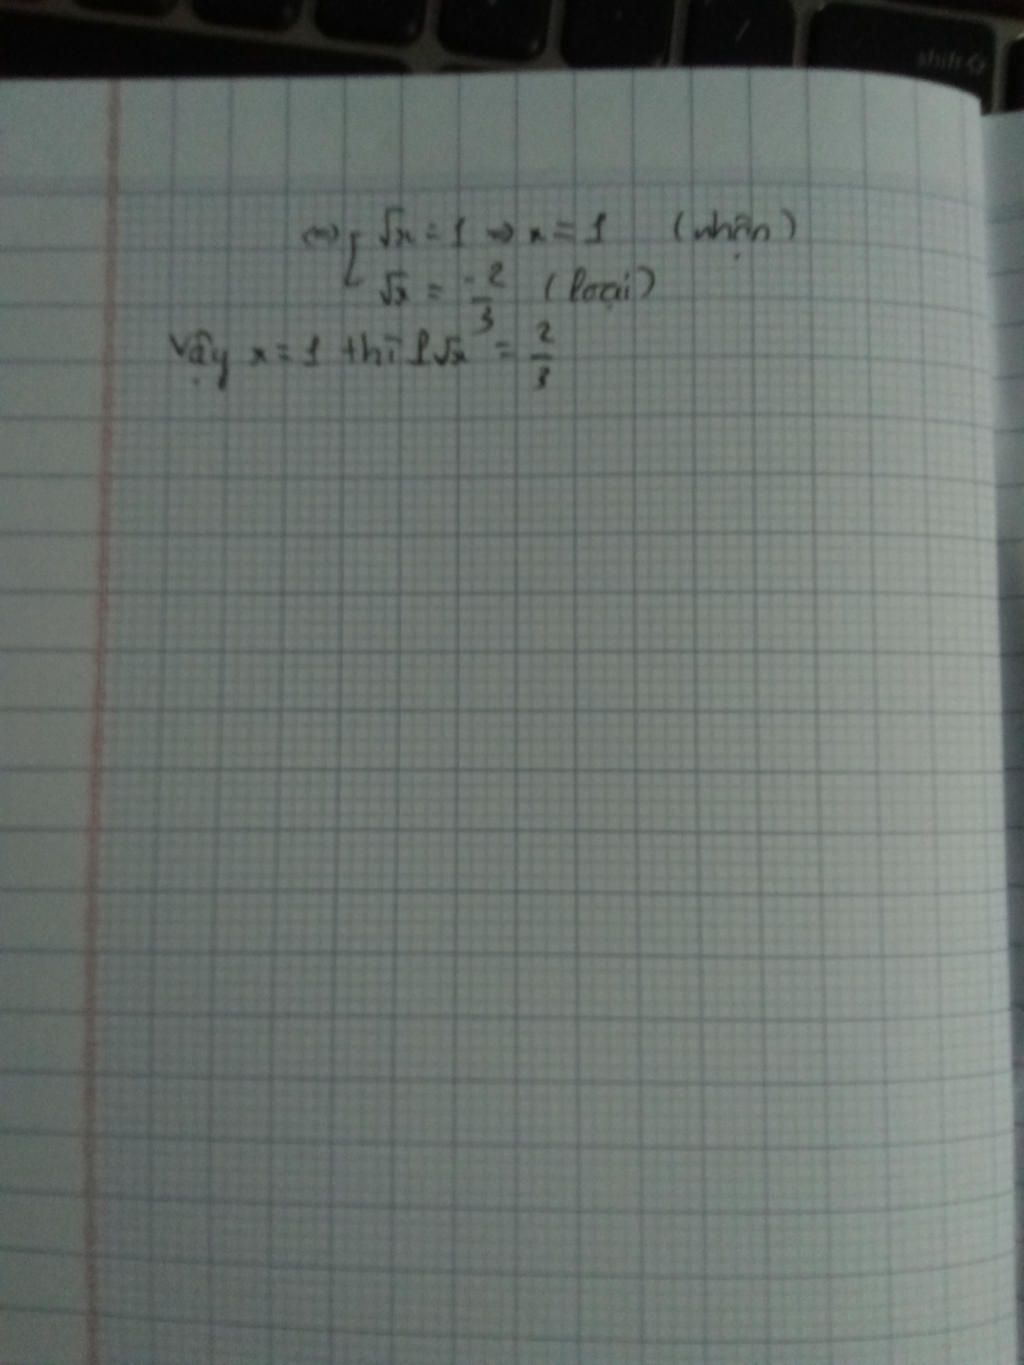 shift
⇔ [ √x = 1 ⇒ x = 1 (nhận)
√x = -2/3 (loại)
Vậy x = 1 thì P√x = 2/3